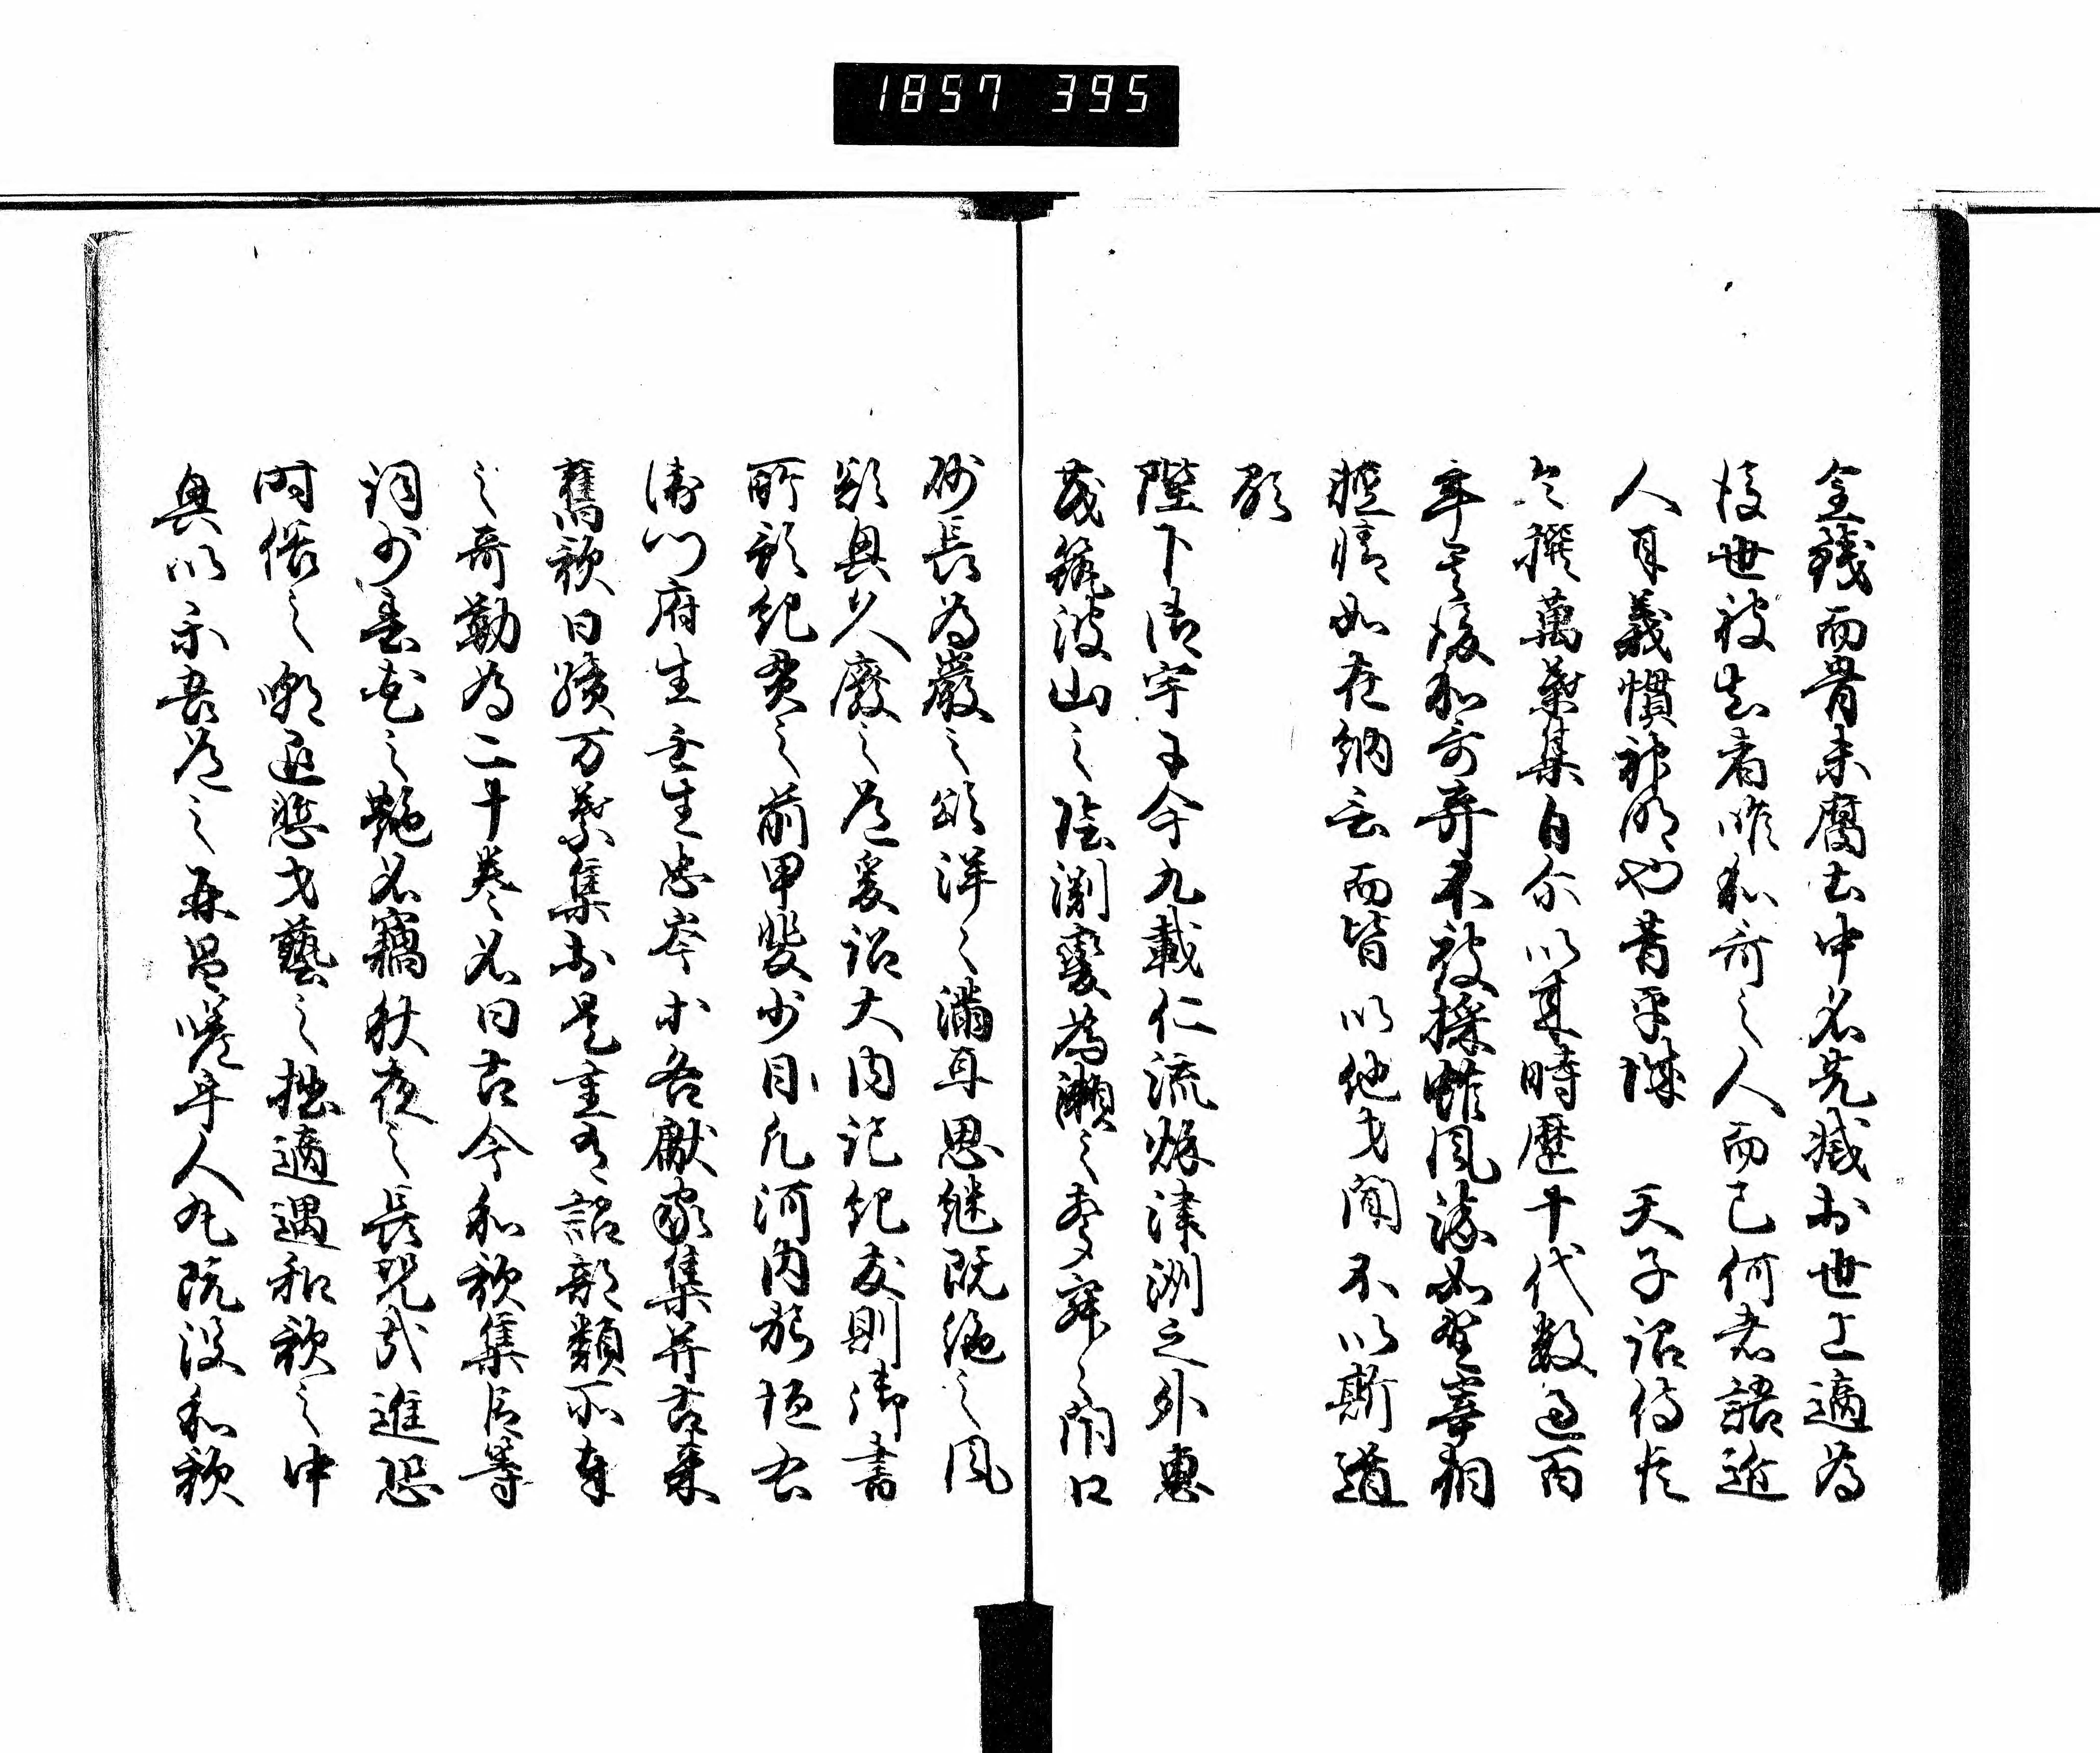 1857 395
金錢而骨未腐土中名先滅於世上適為
後世被知者唯和哥之人而已何者語近
人耳義慣神明也昔平城 天子詔侍臣
令撰萬葉集自尒以来時歴十代数過百
年其後和哥弃不被採雖風流如野宰相
軽情如在納言而皆以他才聞不以斯道
顕
陛下御宇于今九載仁流秋津洲之外恵
茂筑波山之陰淵變為瀬之声寂々閇口
砂長為巖之頌洋々満耳思継既絶之風
欲興久廢之道爰詔大内記紀友則御書
所預紀貫之前甲斐少目凡河内躬恒右
衛門府生壬生忠岑等各獻家集并古来
舊歌曰續万葉集於是重有詔部類所奉
之哥勒為二十巻名曰古今和歌集臣等
詞少春花之艶名竊秋夜之長况哉進恐
時俗之嘲退慙才藝之拙適遇和歌之中
興以示吾道之再昌嗟乎人丸既没和歌